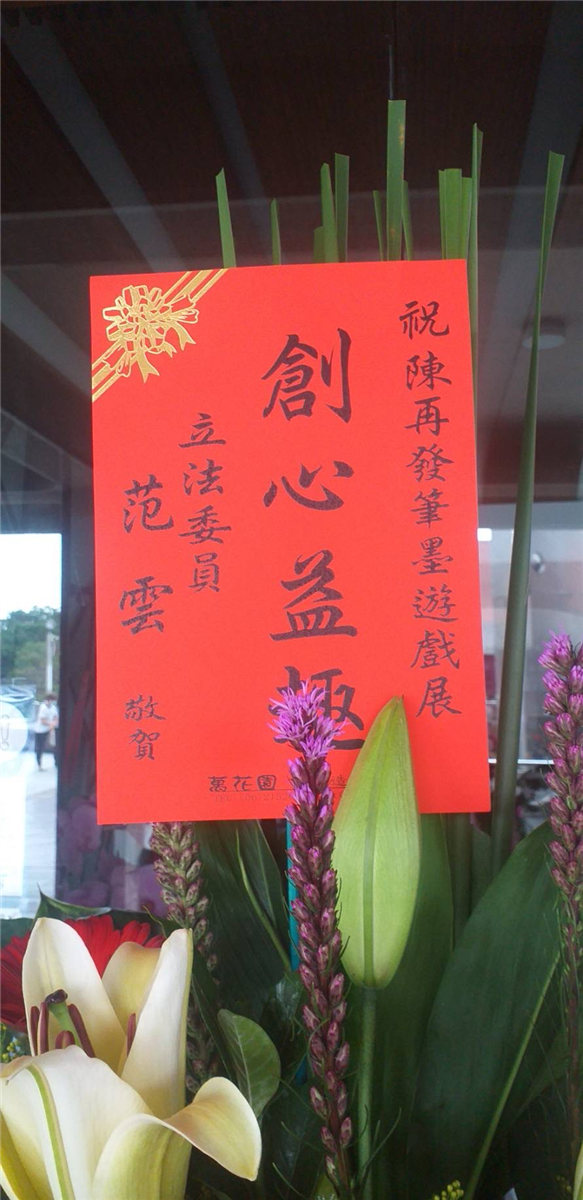 祝陳再發筆墨遊戲展
創心益趣
立法委員
范雲 敬賀
萬花園